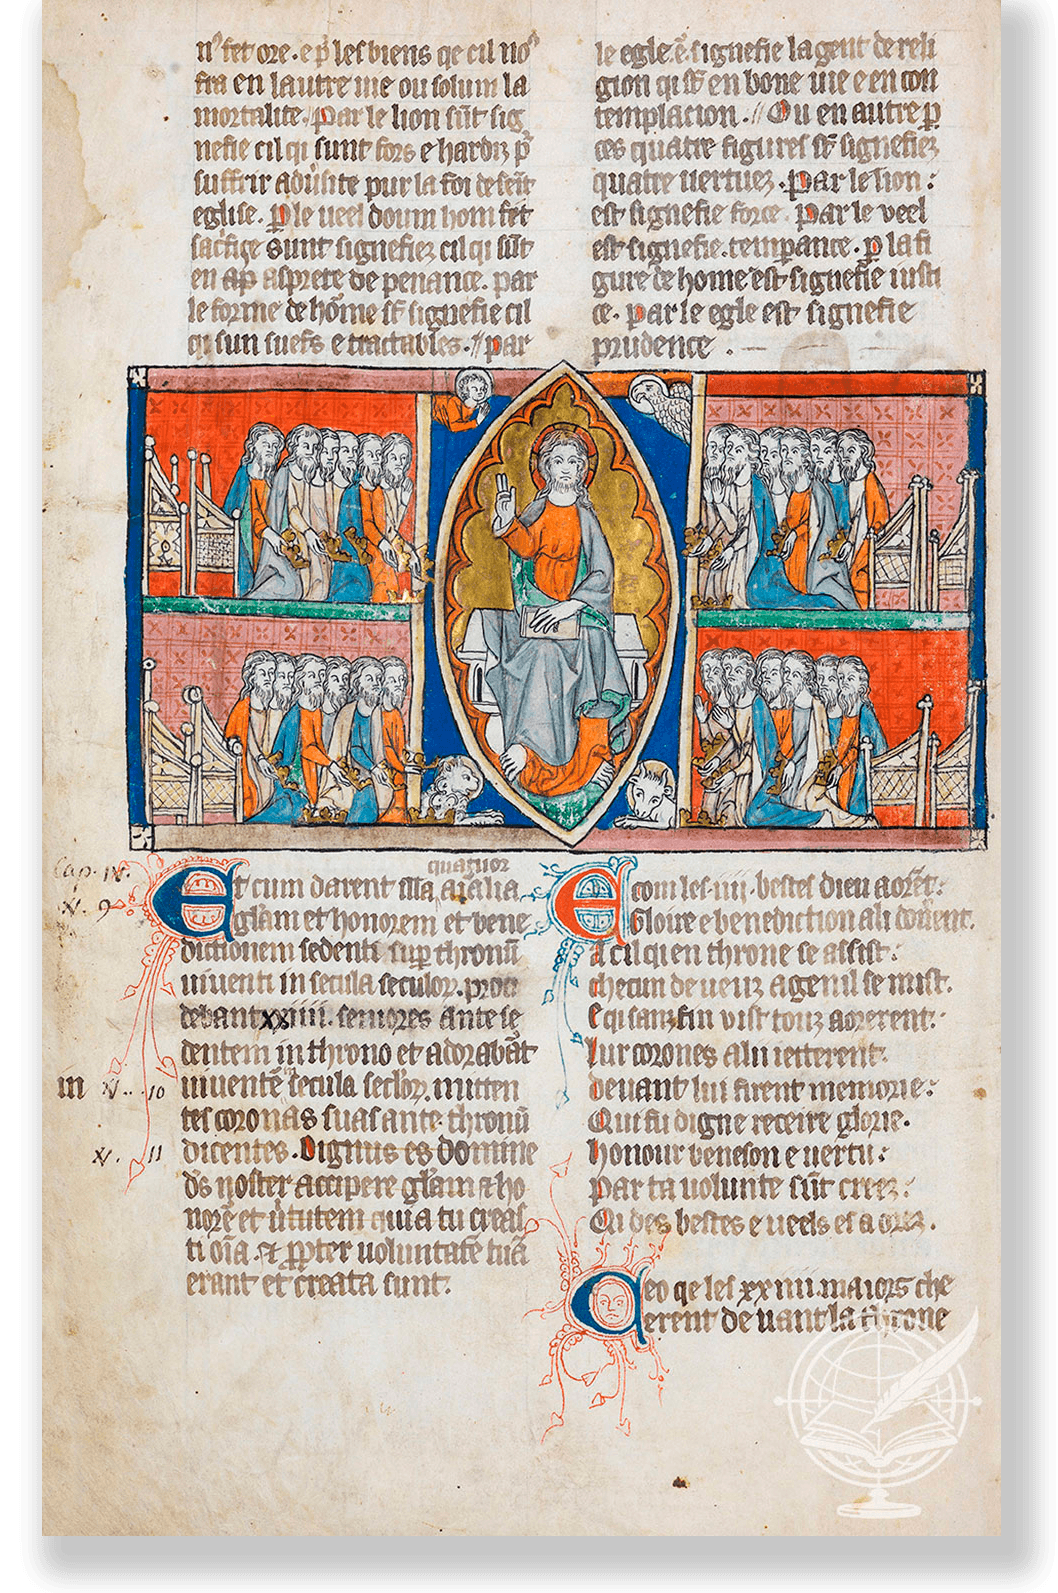 n' fet ore. e p̄ les biens qe cil no⁹
fra en lautre uie ou solum la
mortalite. Par le lion sūt sig
nefie cil qi sunt fors e hardiz p̄
suffrir adūsite pur la foi de seīt
eglise. P̱ le ueel doum hom fet
sac̄fice sunt signefiez cil qi sūt
en ap̄ asprete de penance. par
le forme de hōme st̄ signefie cil
qi sun suefs e tractables. par
le egle ē signefie la gent de reli
gion qi st̄ en bone uie e en con
templacion. Ou en autre p̱
ces quatre figures st̄ signefiez
quatre uertuez. Par le lion:
est signefie force. Par le veel
est signefie temp̱ance. p̱ la fi
gure de home est signefie iusti
ce. Par le egle est signefie
prudence.
Cap. IV.
quatuor
Et cum darent illa aīalia
V. 9
gl̄am et honorem et bene
dictionem sedenti sup̱ thronū
uiuenti in secula seculoꝝ. proci
debant xxiiii. seniores ante se
dentem in throno et adorabāt
in V. 10
uiuentē secula secl̄oꝝ. mitten
tes coronas suas ante thronū
V. 11
dicentes. Dignus es domine
d̄s noster accipere gl̄am & ho
norē et ūtutem quia tu creas
ti oīa. & p̱pter uoluntatē tuā
erant et creata sunt.
E com les .iiij. bestes dieu aorēt:
Gloire e benediction a li douēnt.
A cil qi en throne se assist:
checun de ueuz a genil se mist.
E qi sanz fin vist touz aorerent:
Lur corones a lui ietterent:
deuant lui furent memorie:
Qui fu digne receire glorie.
honour beneson e uertu:
Par ta uolunte sūt creez:
Qi des bestes e ueels es aorez.
Ceo qe les xxiiii. maiors che
erent deuant la throne